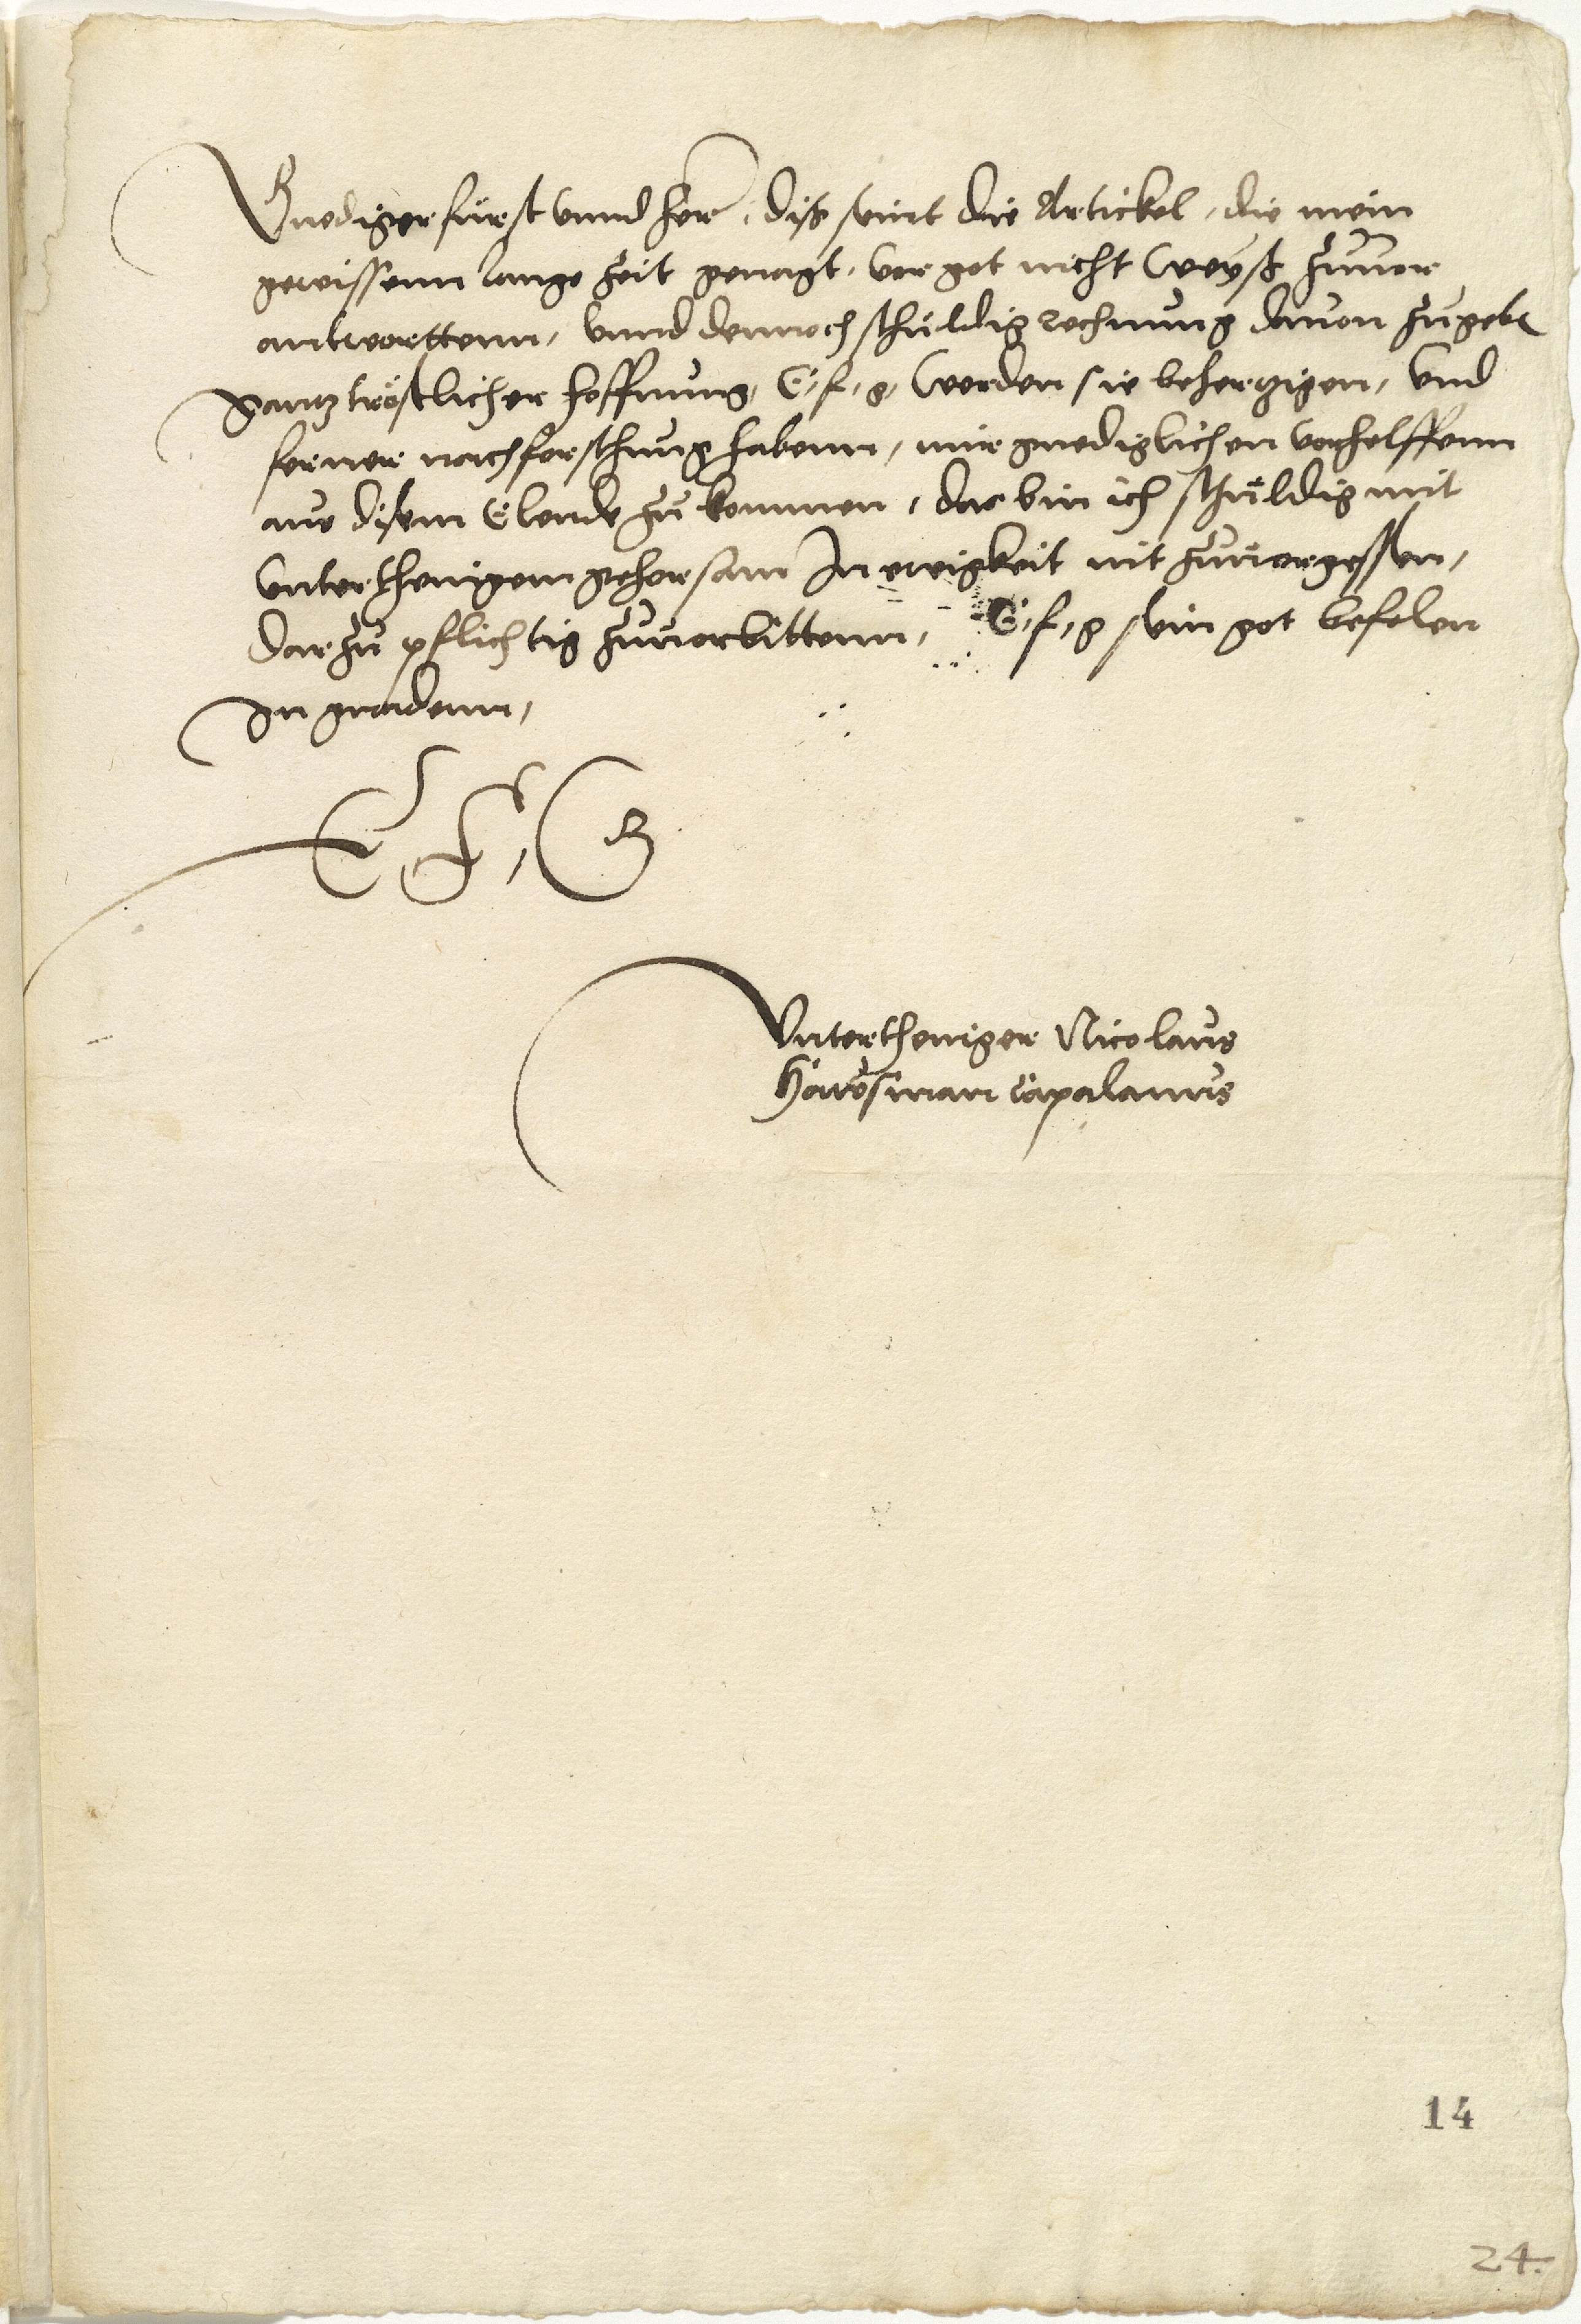 Gnediger fürst unnd her, diß seint die Artickel, die mein
gewissenn lange zeit genagt, vor got nicht weyß zuuor
antworttenn, unnd dennoch schuldig rechnung dauon zugebē
gantz tröstlicher hoffnung, E, f, g, werden sie behertzigen, und
ferner nachforschung habenn, mir gnediglichen vorhelffenn
aus disem Elende zu kommen, das bin ich schuldig mit
unterthenigem gehorsam In ewigkeit nit zuuorgessen,
dar zu pflichtig zuuorbittenn, E, f, g sein got befolen
In gnadenn,
E, F, G
Untertheniger Nicolaus
Hausman capalanus
14
24.